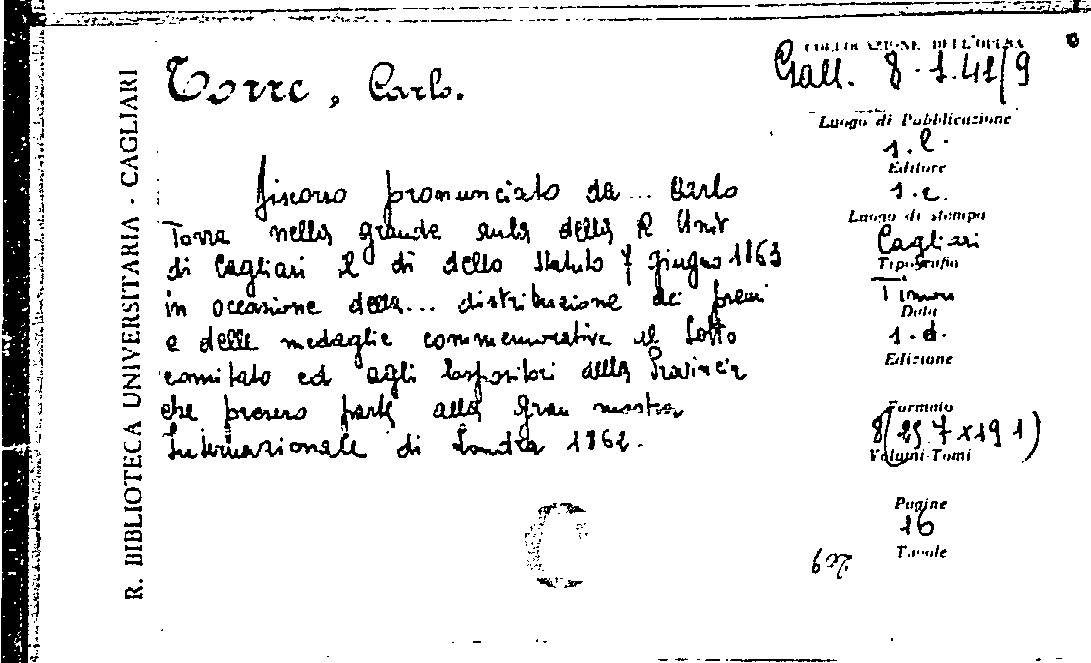 R. BIBLIOTECA UNIVERSITARIA - CAGLIARI
Torre, Carlo.
Discorso pronunciato da ... Carlo
Torre nella grande aula della R Unit
di Cagliari il di dello Statuto 7 giugno 1863
in occasione della... distribuzione dei premi
e delle medaglie commemorative al Sotto
comitato ed agli Espositori della Provincia
che presero parte alla Gran mostra
Internazionale di Londra 1862.
C
COLLOCAZIONE DELL'OPERA
Gall. 8.1.41/9
Luogo di Pubblicazione
s.l.
Editore
s.e.
Luogo di stampa
Cagliari
Tipografia
Timon
Data
s.d.
Edizione
Formato
8(25.7x19 1)
Volumi-Tomi
Pagine
16
Tavole